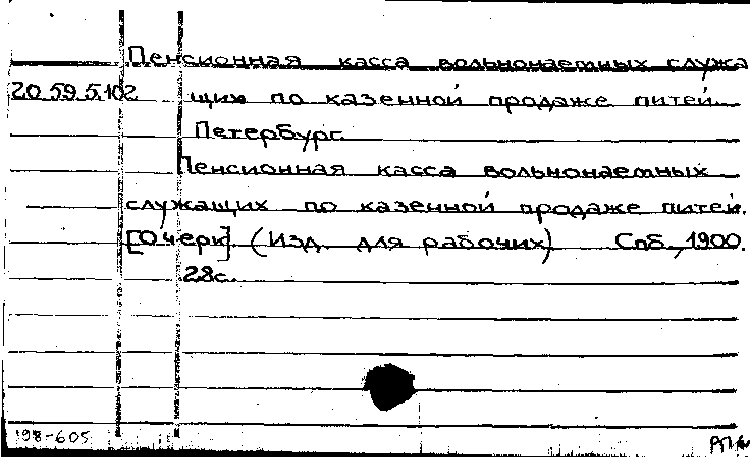 Пенсионная касса вольнонаемных служа
20.59.5.102 щих по казенной продаже питей.
Петербург.
Пенсионная касса вольнонаемных
служащих по казенной продаже питей.
[Очерк]. (Изд. для рабочих) Спб., 1900.
28с.
198-605